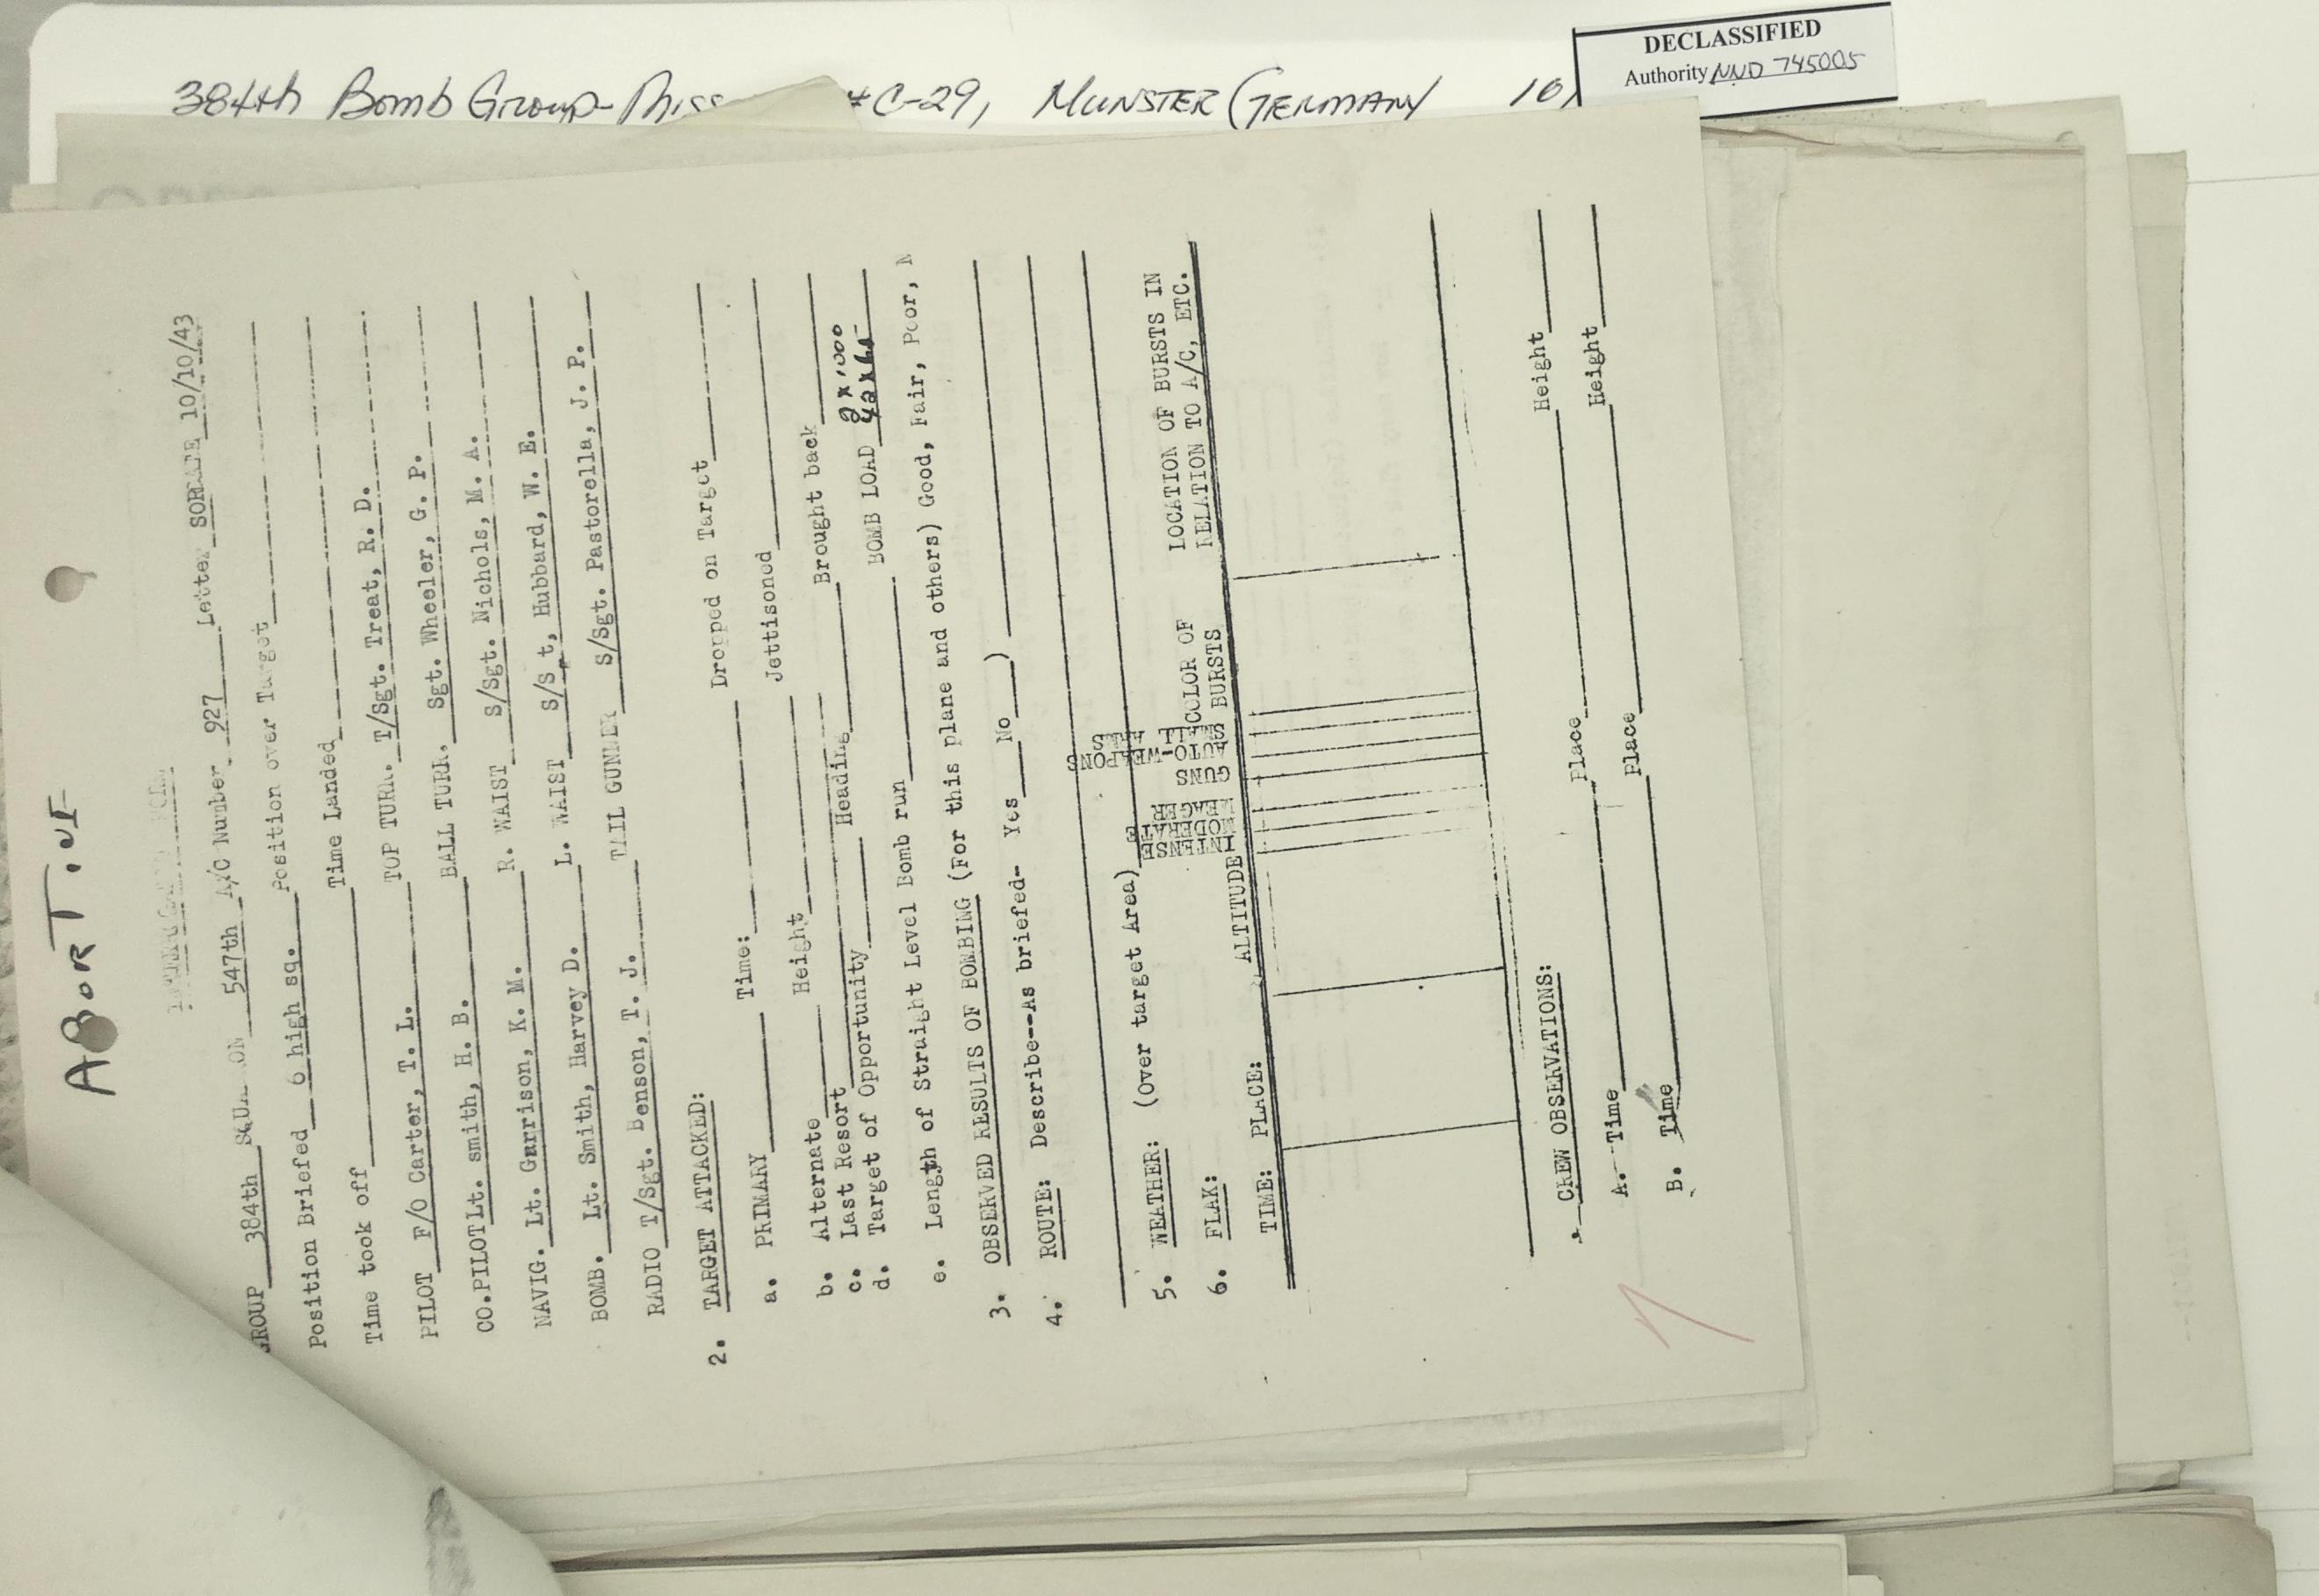 DECLASSIFIED
Authority NND 745005
384th Bomb Group - Miss # C-29, MUNSTER (GERMANY 10
ABORTIVE
GROUP 384th 547th A/C Number 927 Letter 10/10/43
Position Briefed 6 high sq. Position over Target
Time took off Time Landed
PILOT F/O Carter, T. L. TOP TURR. T/Sgt. Treat, R. D.
CO.PILOT Lt. smith, H. B. BALL TURR. Sgt. Wheeler, G. P.
NAVIG. Lt. Garrison, K. M. R. WAIST S/Sgt. Nichols, M. A.
BOMB. Lt. Smith, Harvey D. L. WAIST S/S t, Hubbard, W. E.
RADIO T/Sgt. Benson, T. J. TAIL GUNNER S/Sgt. Pastorella, J. P.
2. TARGET ATTACKED:
a. PRIMARY Time: Dropped on Target
b. Alternate Height Jettisoned
c. Last Resort Heading Brought back
d. Target of Opportunity BOMB LOAD 2 x 1000
42 x 60
e. Length of Straight Level Bomb run
3. OBSERVED RESULTS OF BOMBING (For this plane and others) Good, Fair, Poor, N
4. ROUTE: Describe--As briefed- Yes No )
5. WEATHER: (Over target Area)
6. FLAK:
TIME: PLACE: ALTITUDE INTENSE MODERATE MEAGER GUNS AUTO-WEAPONS COLOR OF BURSTS LOCATION OF BURSTS IN RELATION TO A/C, ETC.
CREW OBSERVATIONS:
A. Time Place Height
B. Time Place Height